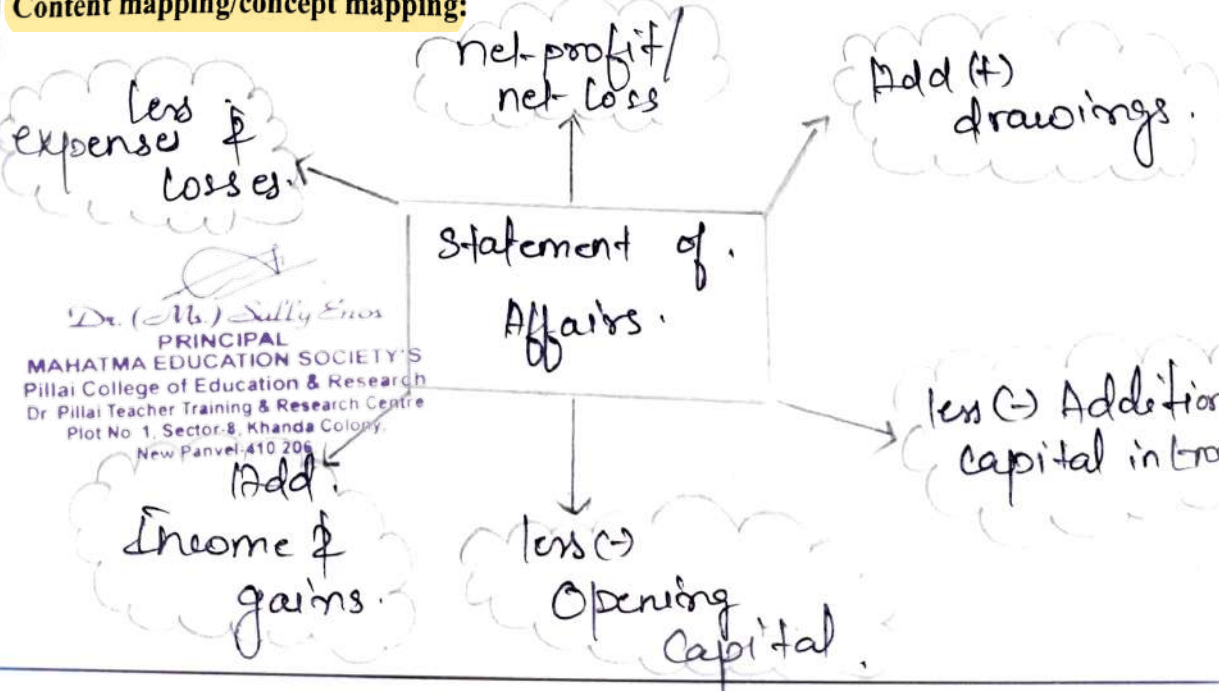 Content mapping/concept mapping:
net-profit/
net-loss
Add (+)
drawings.
less
expense &
losses.
Statement of.
Affairs.
Dr. (Ms.) Sally Enos
PRINCIPAL
MAHATMA EDUCATION SOCIETY'S
Pillai College of Education & Research
Dr Pillai Teacher Training & Research Centre
Plot No 1, Sector-8, Khanda Colony,
New Panvel-410 206
less (-) Addition
capital intro
Add.
Income &
gains.
less (-)
Opening
Capital.